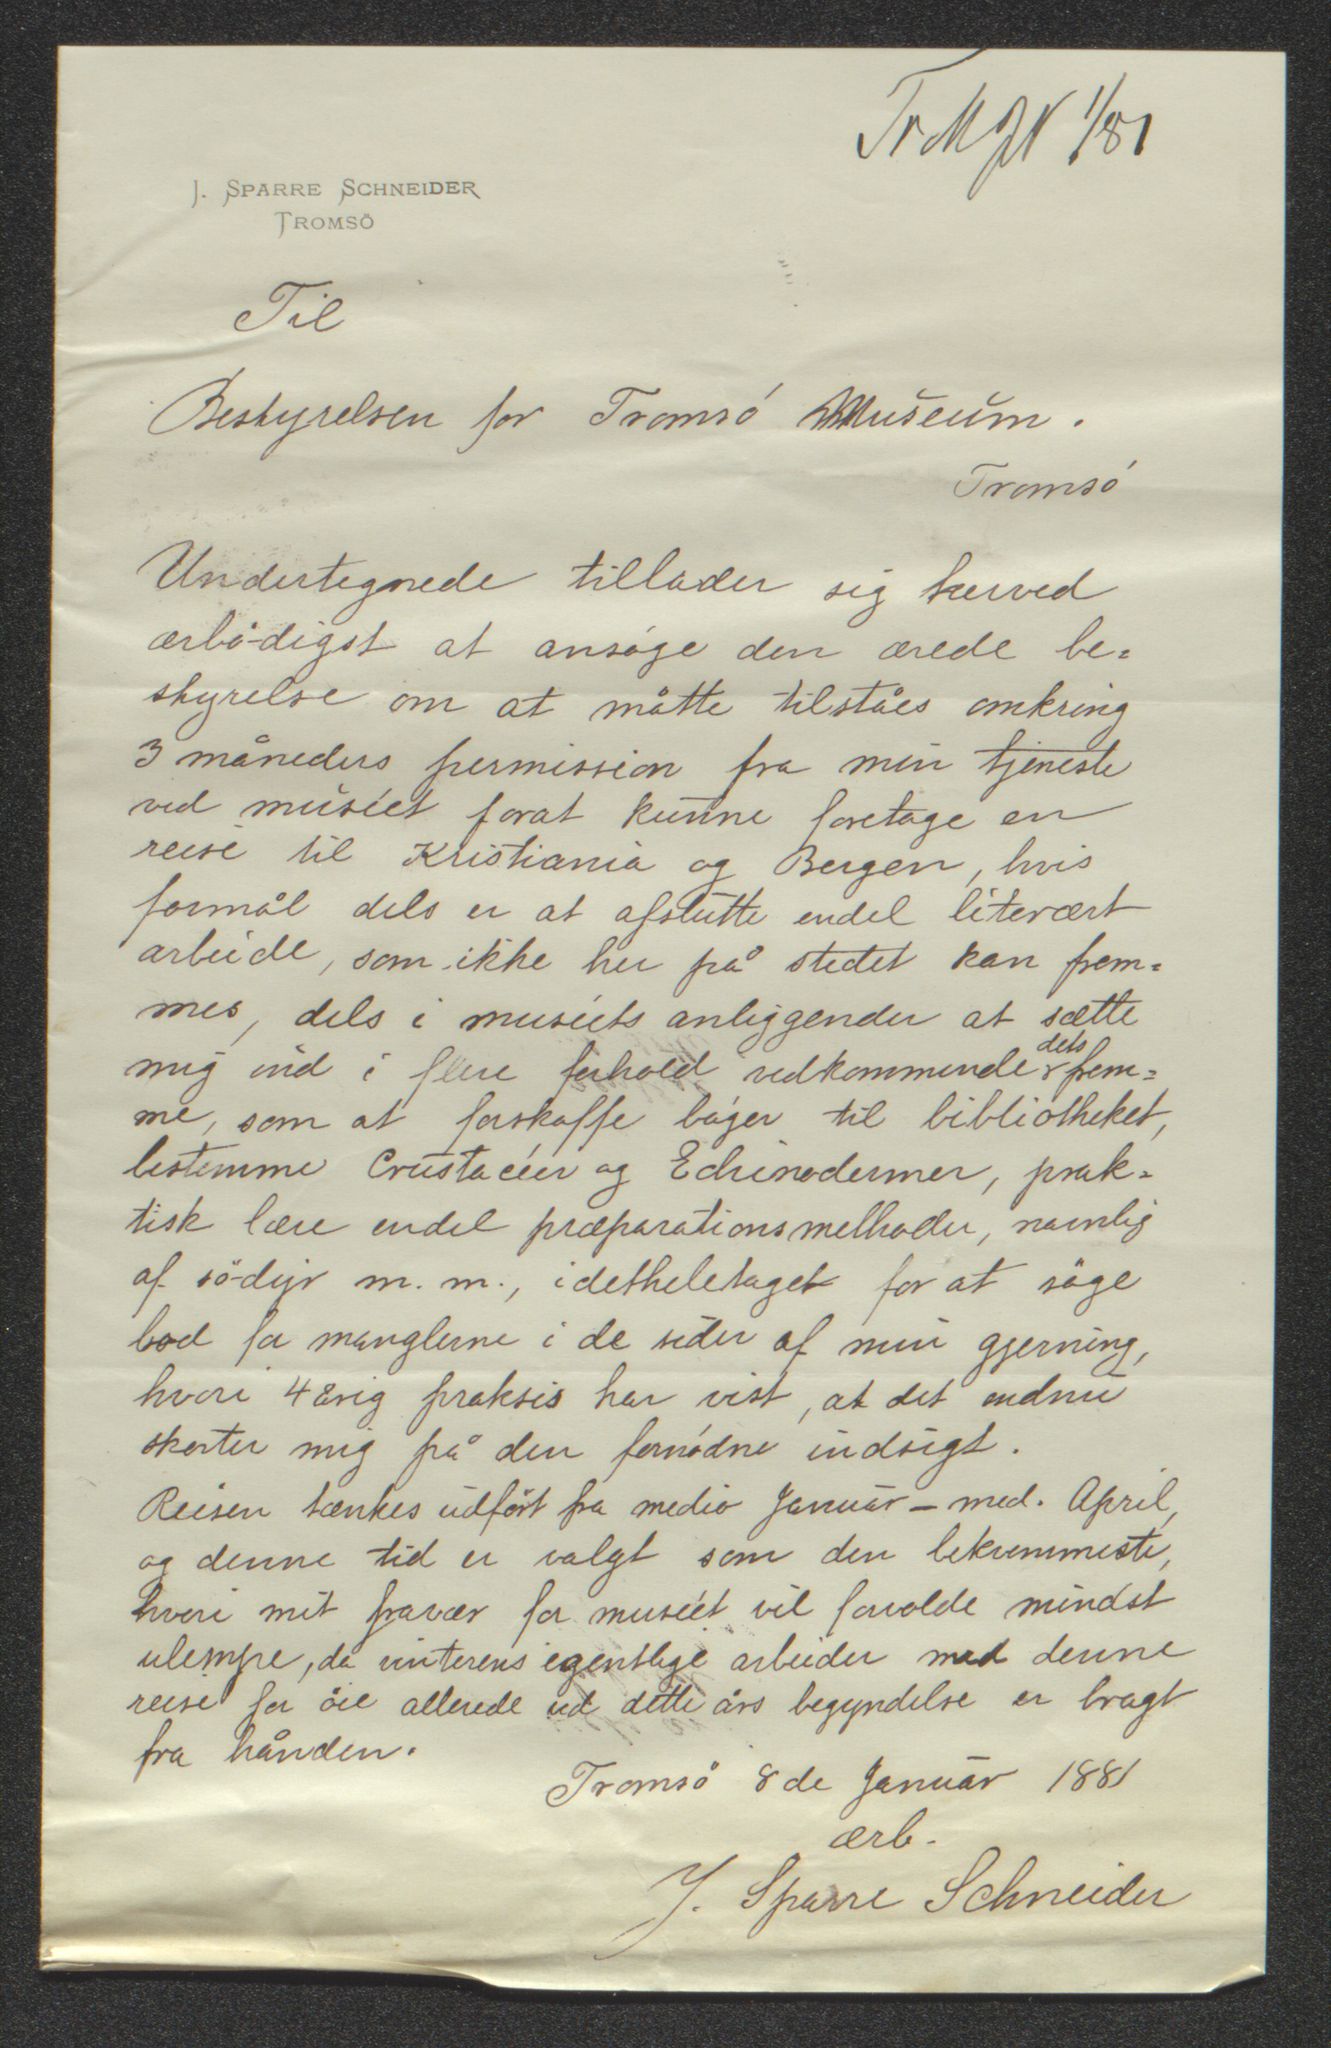 TrM JN 1/81
J. SPARRE SCHNEIDER
TROMSÖ
Til
Bestyrelsen for Tromsö Museum.
Tromsö
Undertegnede tillader sig herved
ærbödigst at ansöge den ærede be=
styrelse om at måtte tilståes omkring
3 måneders permission fra min tjeneste
ved muséet forat kunne foretage en
reise til Kristiania og Bergen, hvis
formål dels er at afslutte endel literært
arbeide, som ikke her på stedet kan frem=
mes, dels i muséets anliggender at sætte
mig ind i flere forhold vedkommende dets frem=
me, som at forskaffe böger til bibliotheket,
bestemme Crustacéer og Echinodermer, prak=
tisk lære endel præparationsmethoder, navnlig
af södyr m. m., idetheletaget for at söge
bod for manglerne i de sider af min gjerning,
hvori 4 årig praksis har vist, at det endnu
skorter mig på den fornödne indsigt.
Reisen tænkes udfört fra medio Januar – med. April,
og denne tid er valgt som den bekvemmeste,
hvori mit fravær for muséet vil forvolde mindst
ulempe, da vinterens egentlige arbeider med denne
reise for öie allerede ved dette års begyndelse er bragt
fra hånden.
Tromsö 8de Januar 1881
ærb.
J. Sparre Schneider